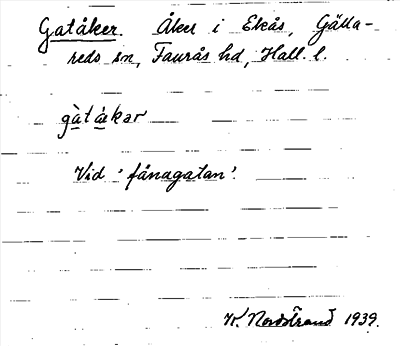 Gatåker. Åker i Ekås, Gälla-
reds sn, Faurås hd, Hall. l.
gàtákər
Vid 'fånagatan'.
W. Nordstrand 1939.